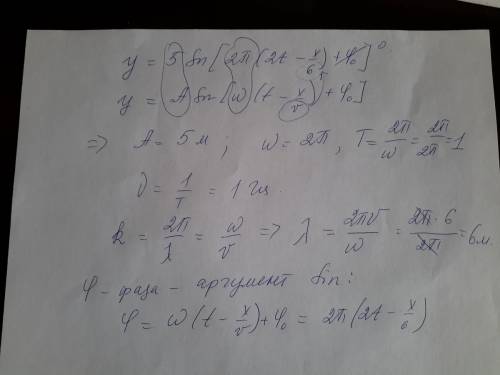 y = 5 sin[2π(2t - x/6) + φ₀] 0
y = A sin[ω(t - x/v) + φ₀]
=> A = 5 м ; ω = 2π , T = 2π/ω = 2π/2π = 1
ν = 1/T = 1 Гц.
k = 2π/λ = ω/v => λ = 2πv/ω = 2π·6/2π = 6 м.
φ - фаза - аргумент sin:
φ = ω(t - x/v) + φ₀ = 2π(2t - x/6)